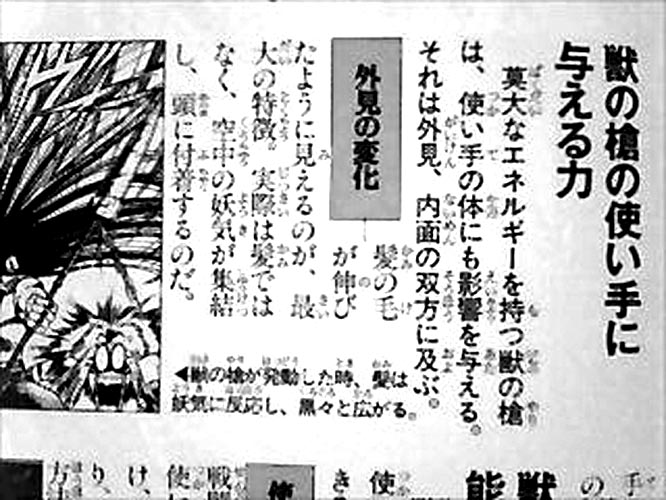 獣の槍の使い手に
与える力
莫大なエネルギーを持つ獣の槍
は、使い手の体にも影響を与える。
それは外見、内面の双方に及ぶ。
外見の変化
髪の毛
が伸び
たように見えるのが、最
大の特徴。実際は髪では
なく、空中の妖気が集結
し、頭に付着するのだ。
◀獣の槍が発動した時、髪は
妖気に反応し、黒々と広がる。
手
の
獣
能
使
き
使
戦闘
使
け、
り、
方法